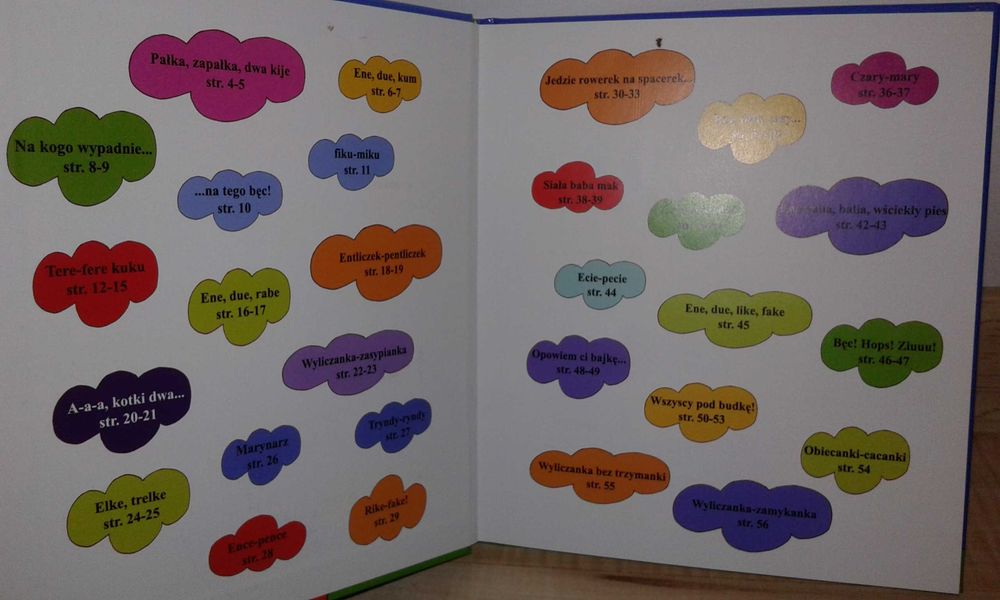 Pałka, zapałka, dwa kije
str. 4-5
Ene, due, kum
str. 6-7
Na kogo wypadnie...
str. 8-9
fiku-miku
str. 11
...na tego bęc!
str. 10
Entliczek-pentliczek
str. 18-19
Tere-fere kuku
str. 12-15
Ene, due, rabe
str. 16-17
Wyliczanka-zasypianka
str. 22-23
A-a-a, kotki dwa...
str. 20-21
Tryndy-ryndy
str. 27
Marynarz
str. 26
Elke, trelke
str. 24-25
Rike-fake!
str. 29
Ence-pence
str. 28
Jedzie rowerek na spacerek...
str. 30-33
Czary-mary
str. 36-37
Siała baba mak
str. 38-39
balia, wściekły pies
str. 42-43
Ecie-pecie
str. 44
Ene, due, like, fake
str. 45
Bęc! Hops! Ziuuu!
str. 46-47
Opowiem ci bajkę...
str. 48-49
Wszyscy pod budkę!
str. 50-53
Obiecanki-cacanki
str. 54
Wyliczanka bez trzymanki
str. 55
Wyliczanka-zamykanka
str. 56